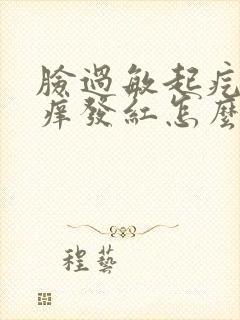 臉過敏起疙
癢發紅怎麼
程藝